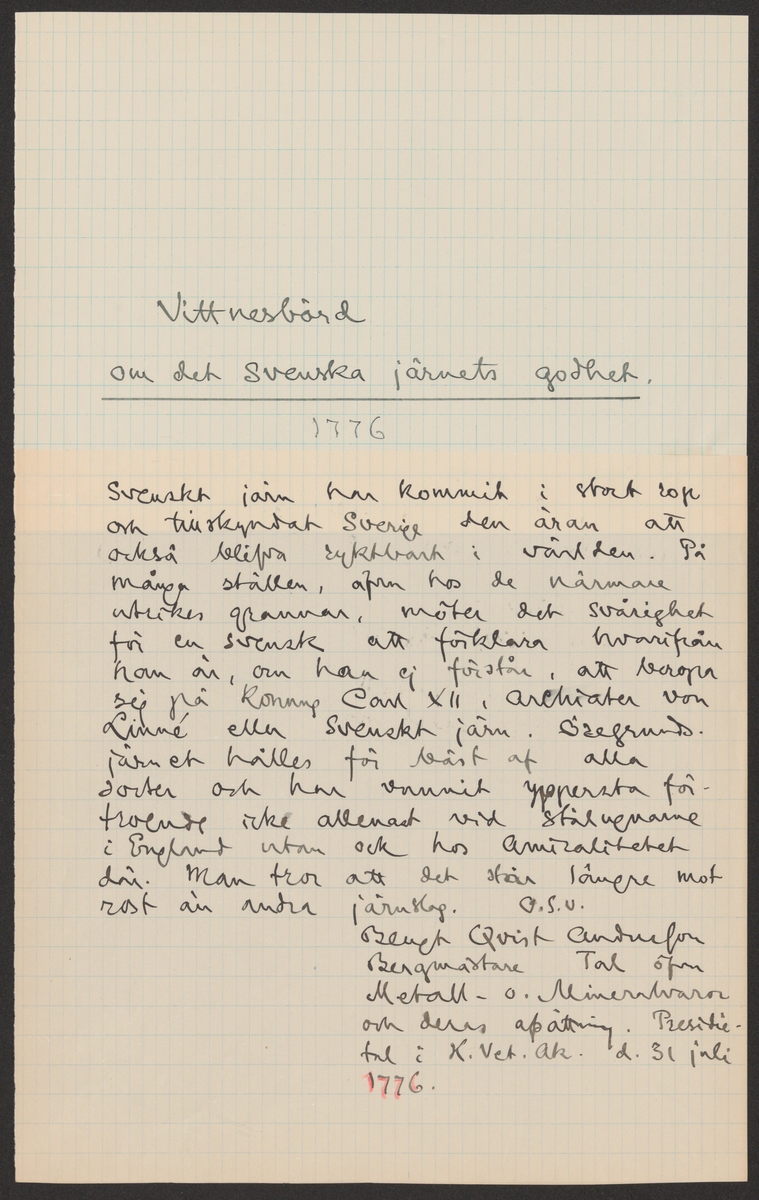 Vittnesbörd
om det svenska järnets godhet.
1776
Svenskt järn har kommit i stort rop
och tillskyndat Sverige den äran att
också blifva ryktbart i världen. På
många ställen, äfven hos de närmare
utrikes grannar, möter det svårighet
för en svensk att förklara hvarifrån
han är, om han ej förstår, att beropa
sig på Konung Carl XII, Archiater von
Linné eller Svenskt järn. Öregrunds-
järnet hålles för bäst af alla
sorter och har vunnit yppersta för-
troende icke allenast vid stålugnarne
i England utan ock hos Amiralitetet
där. Man tror att det står längre mot
rost än andra järnslag. O.S.V.
Bengt Qvist Andersson
Bergmästare Tal öfver
Metall- o. Mineralvaror
och deras afsättning. Presidie-
tal i K. Vet. Ak. d. 31 juli
1776.